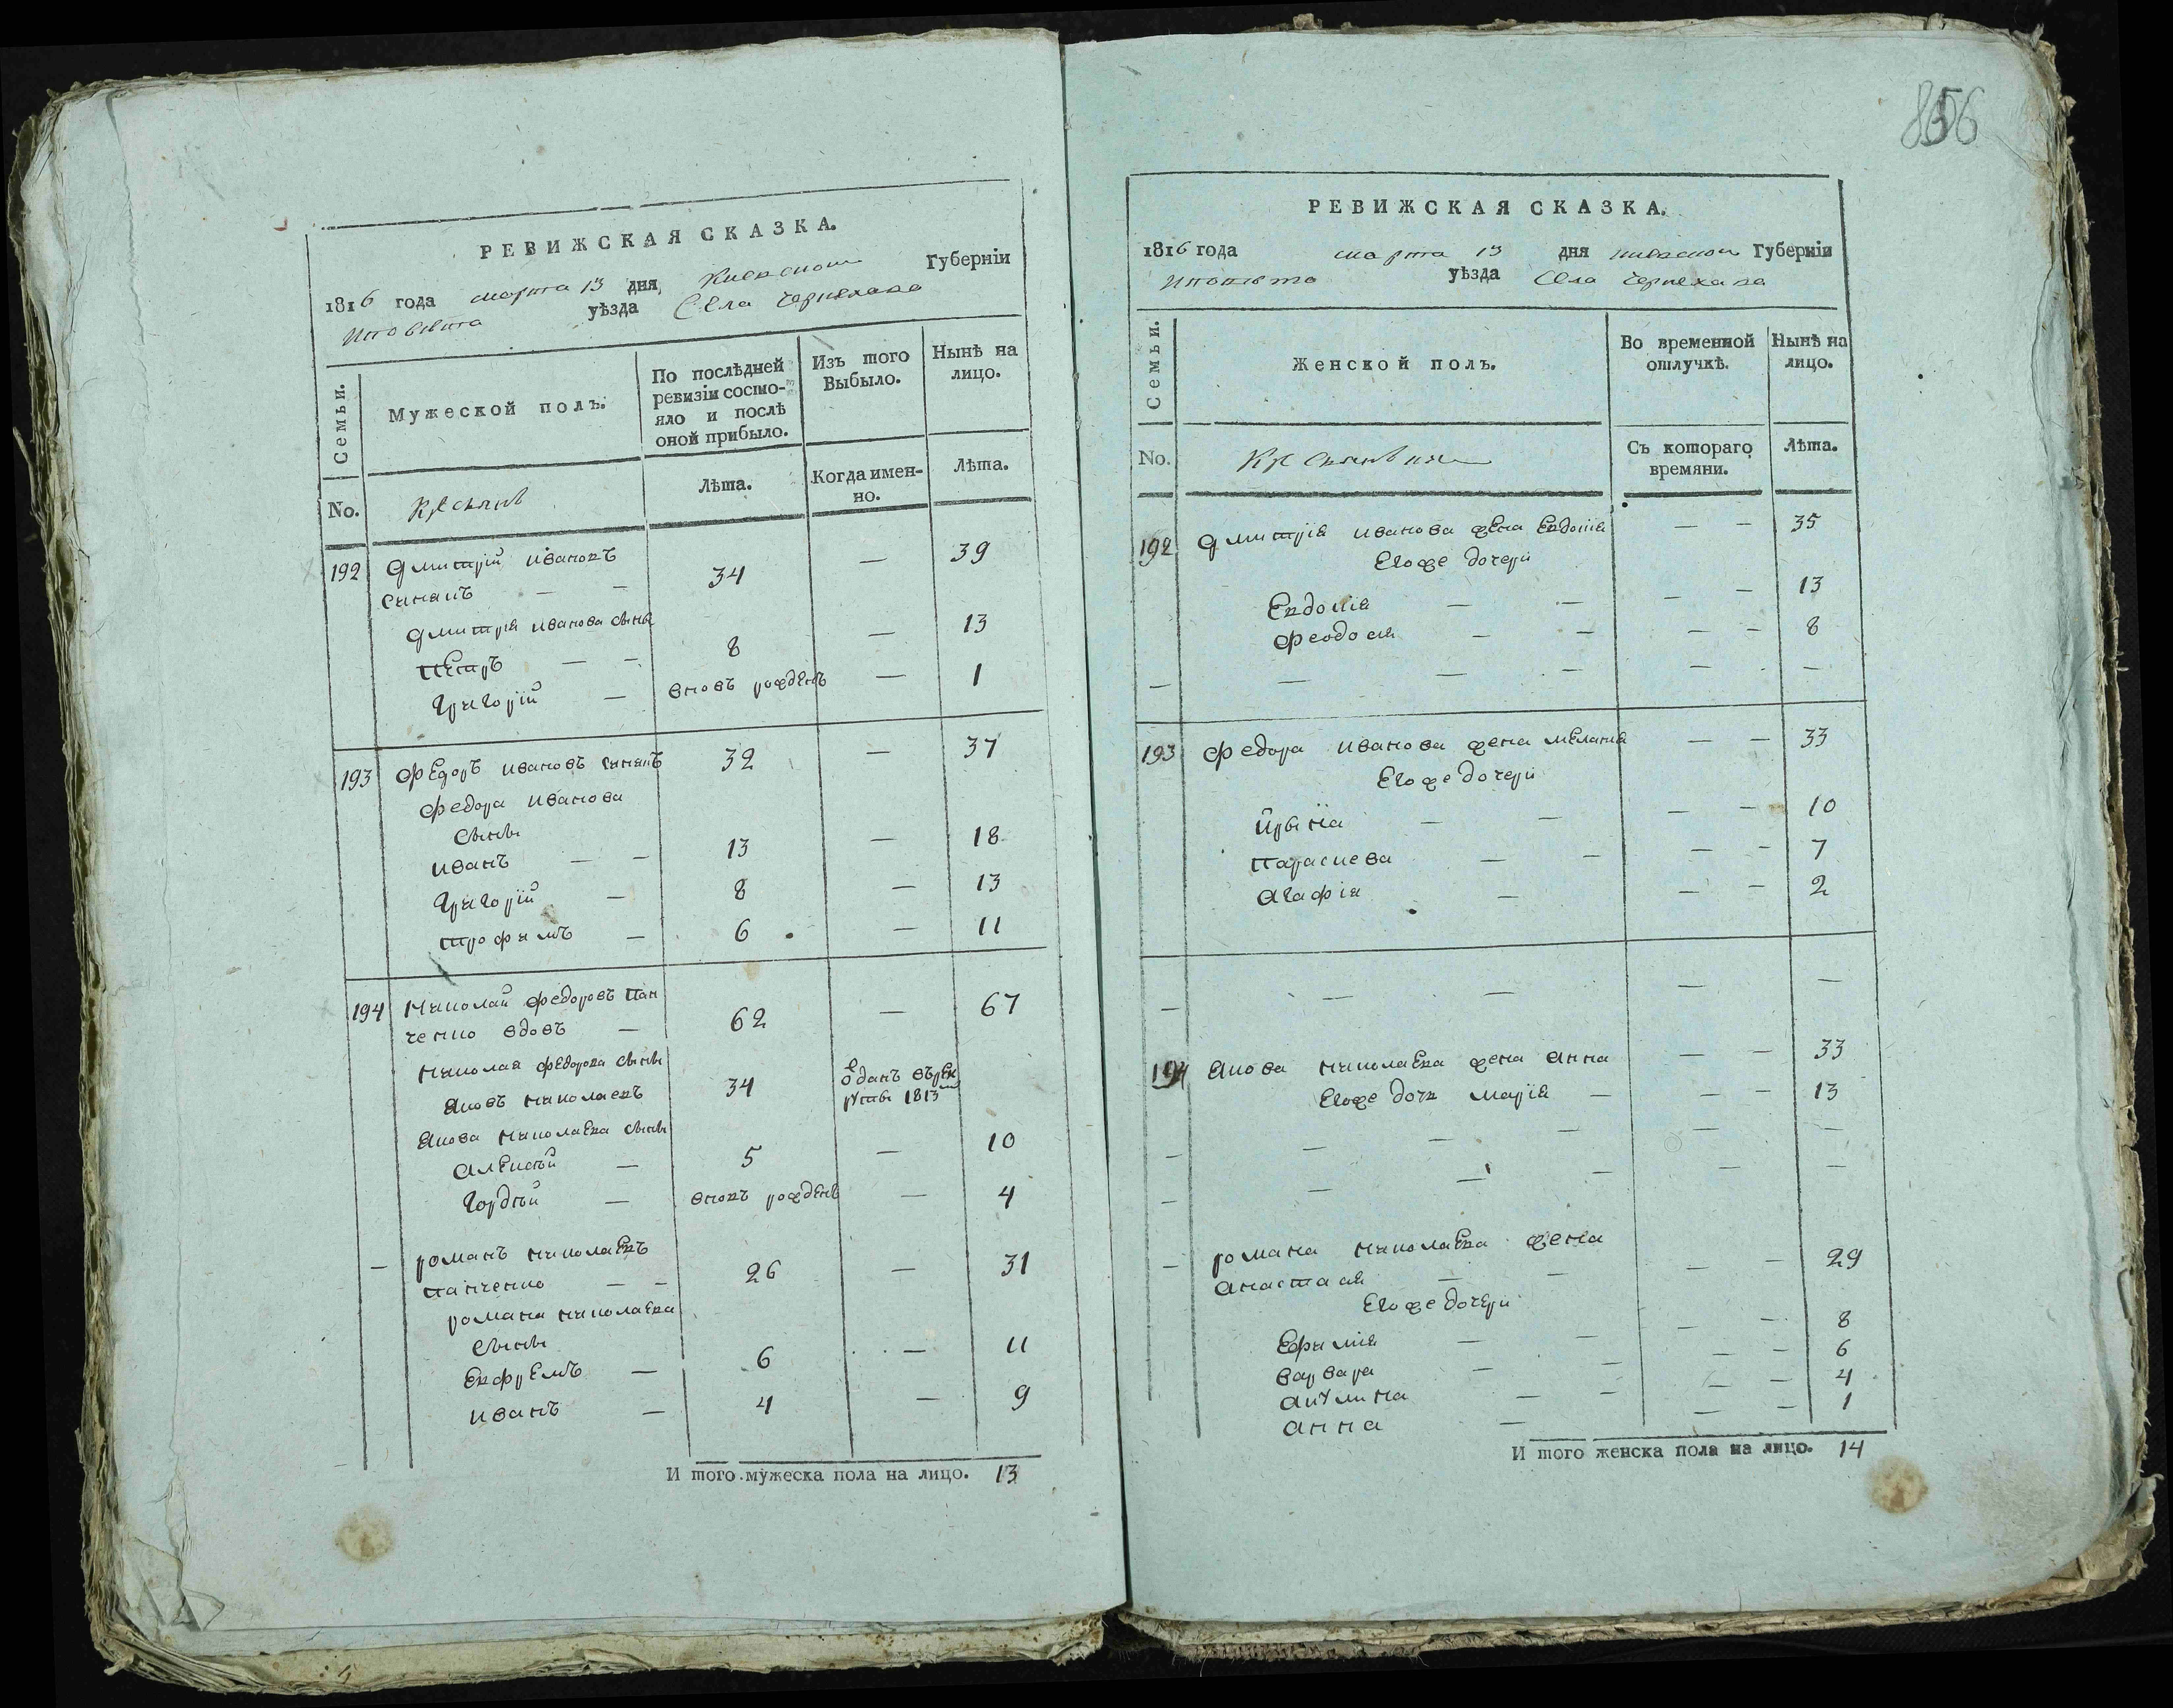 856
РЕВИЖСКАЯ СКАЗКА.
1816 года марта 13 дня, Киевской Губерніи
уѣзда Села Чернехава
Семьи.
Мужеской полъ.
По послѣдней ревизіи состо-
яло и послѣ
оной прибыло.
Изъ того
Выбыло.
Нынѣ на
лицо.
No.
Лѣта.
Когда имен-
но.
Лѣта.
192 Дмитрій Ивановъ
34 — 39
Дмитрія Иванова сыны
Петръ — — 8 — 13
Григорій — вновъ рожденъ — 1
193 Федоръ Ивановъ 32 — 37
Федора Иванова
сыны
Иванъ — — 13 — 18
Григорій — 8 — 13
Трофимъ — 6 — 11
194 Николай Федоровъ Пан
ченко вдовъ — 62 — 67
Николая Федорова сыны
Яковъ Николаевъ 34 отданъ въ рек
руты 1813
Якова Николаева сыны
Алексѣй — 5 — 10
Гордѣй — вновъ рожденъ — 4
— Романъ Николаевъ
Панченко — — 26 — 31
Романа Николаева
сыны
Ефремъ — 6 — 11
Иванъ — 4 — 9
И того мужеска пола на лицо. 13
РЕВИЖСКАЯ СКАЗКА.
1816 года марта 13 дня Киевской Губерніи
уѣзда Села Чернехава
Семьи.
Женской полъ.
Во временной
отлучкѣ.
Нынѣ на
лицо.
No.
Съ котораго
времяни.
Лѣта.
192 Дмитрія Иванова жена Евдокія — — 35
Егоже дочери
Евдокія — — — — 13
Феодосія — — — — 8
— — — — — —
193 Федора Иванова жена Меланія — — 33
Егоже дочери
Ирына — — — — 10
Параскева — — — — 7
Агафія — — — 2
— — — — —
194 Якова Николаева жена Анна — — 33
Егоже дочь Марія — — — 13
— — — — — —
— — — — — —
— Романа Николаева жена
Анастасія — — — — 29
Егоже дочери
Ефимія — — — — 8
Варвара — — — — 6
Акулина — — — — 4
Анна — — — 1
И того женска пола на лицо. 14